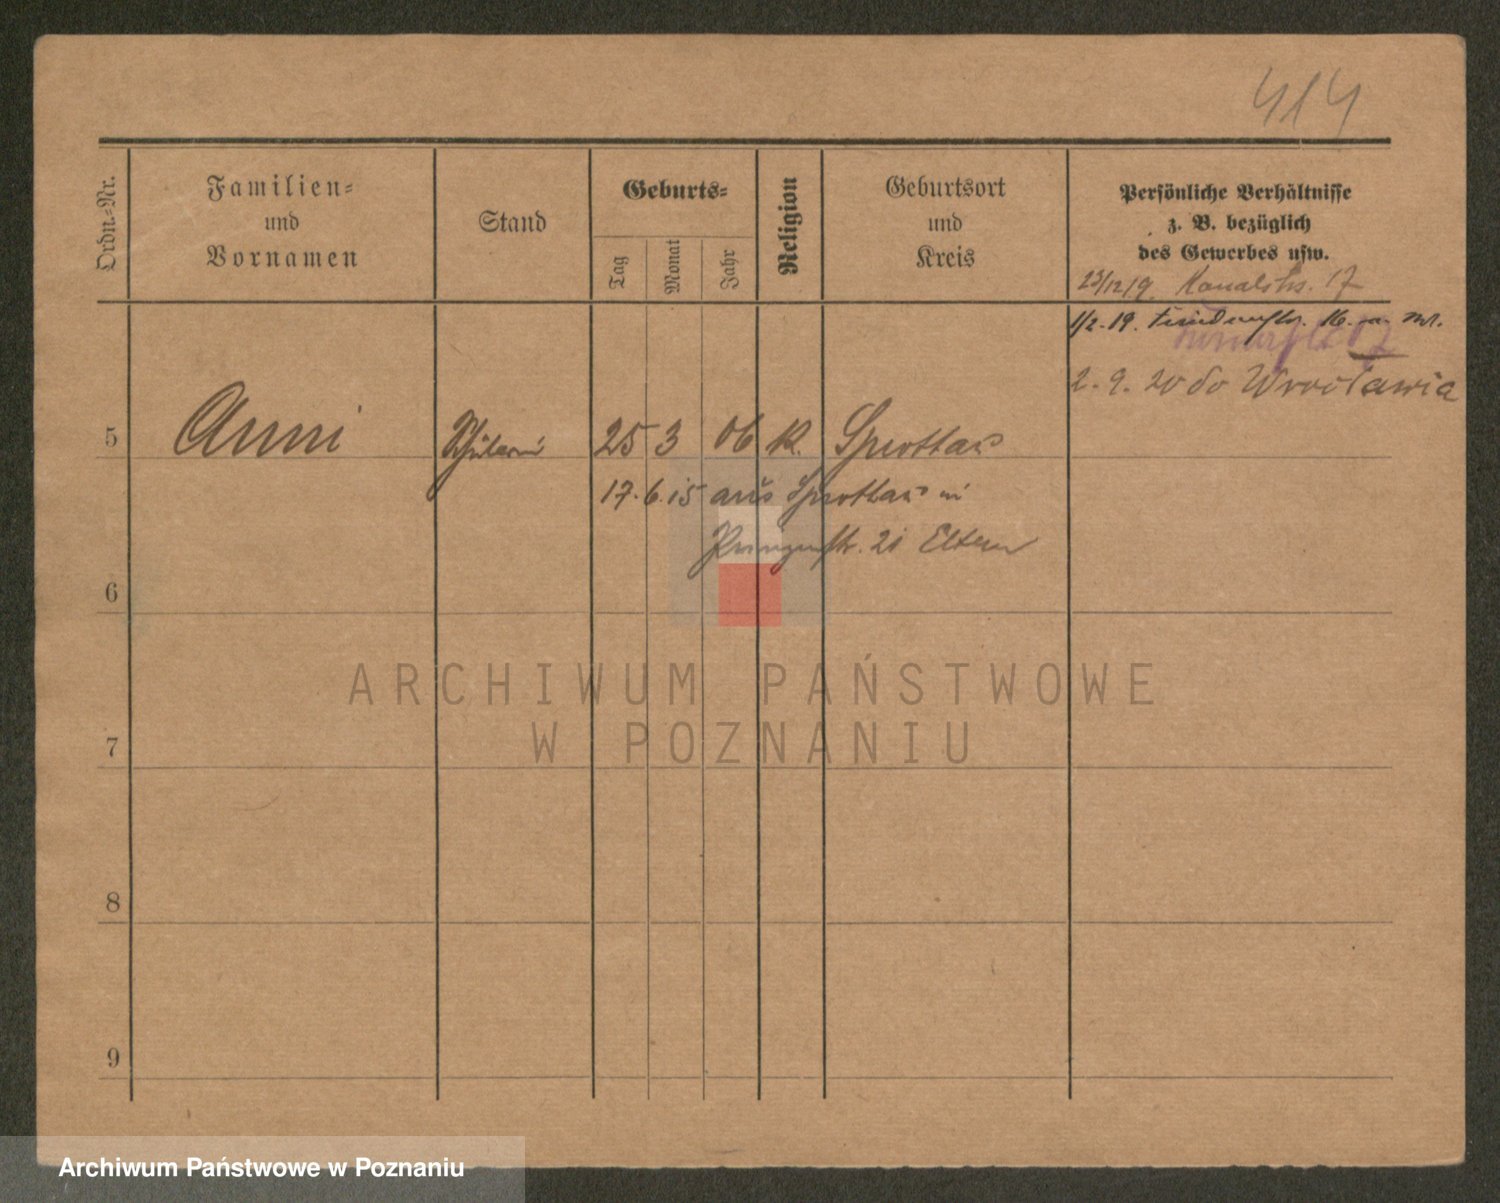 414
Ordn.-Nr.
Familien-
und
Vornamen
Stand
Geburts-
Tag
Monat
Jahr
Religion
Geburtsort
und
Kreis
Persönliche Verhältnisse
z. B. bezüglich
des Gewerbes usw.
23/12 19. Kanalstr. 17
1/2. 19.
2. 9. 20 do Wrocławia
5 Anni Schülerin 25 3 06 K. Sprottau
17. 6. 15 aus Sprottau in
Prinzenstr. 21 Eltern
6
ARCHIWUM PAŃSTWOWE
W POZNANIU
7
8
9
Archiwum Państwowe w Poznaniu